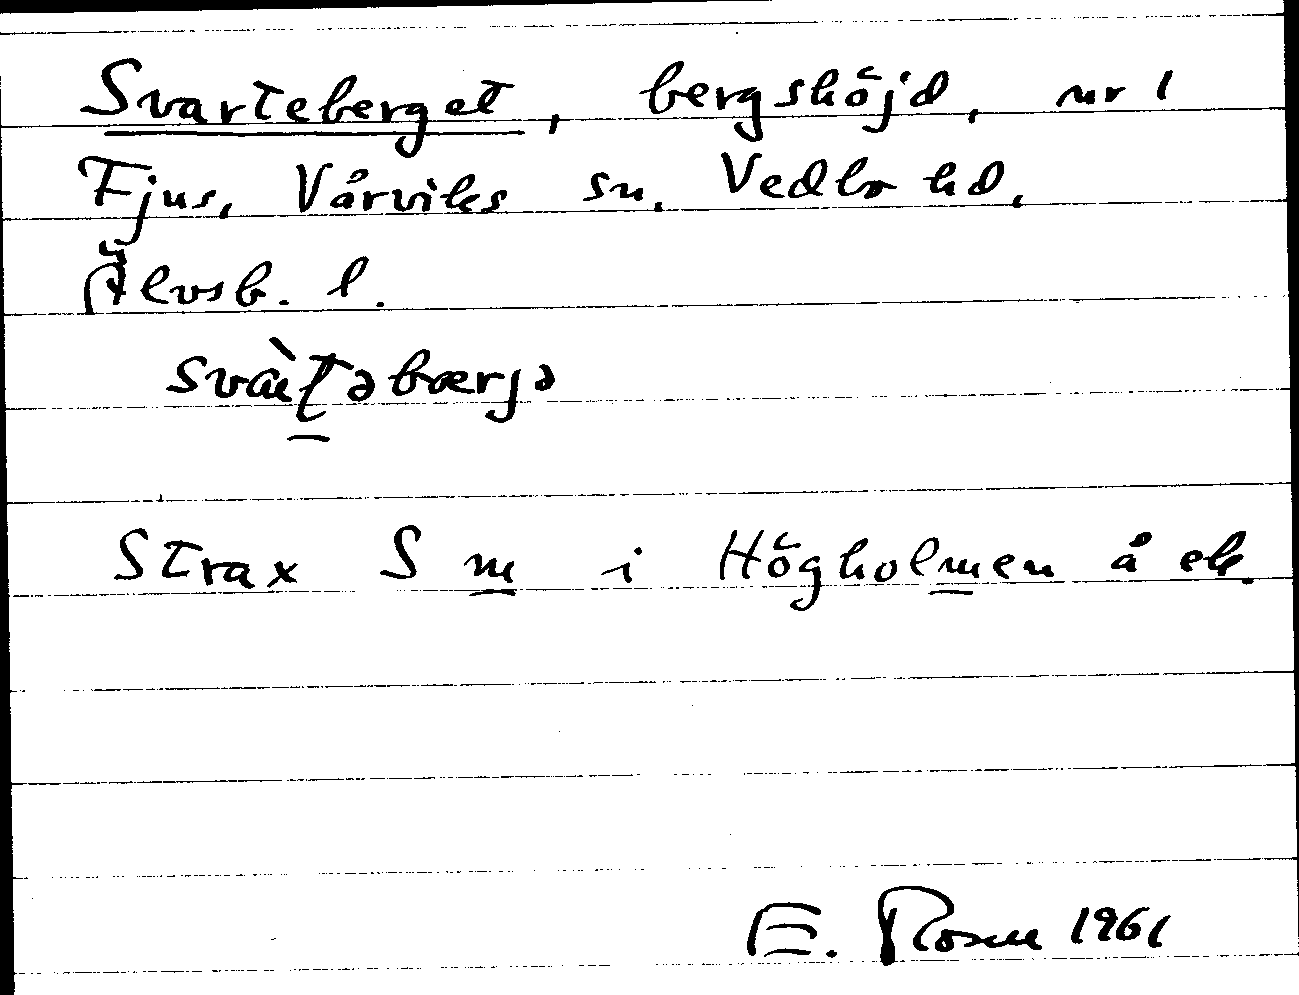 Svarteberget, bergshöjd, nr 1
Fjus, Vårviks sn. Vedbo hd,
Älvsb. l.
Strax S m i Högholmen å ek.
E. Rosen 1961